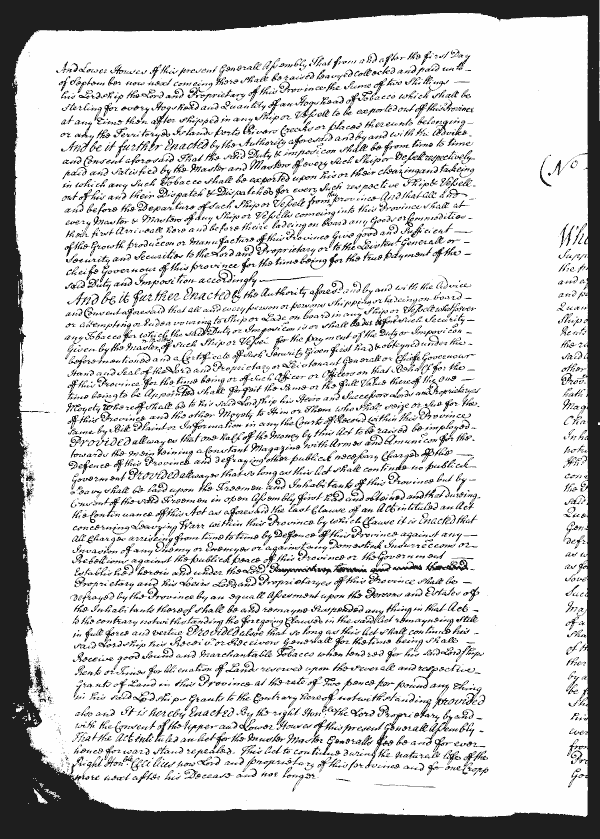 And Lower Houses of this present Generall Assembly That from and after the first Day
of September now next comeing there shall be raised leavyed collected and paid unto
his Lordship the Lord and Proprietary of this Province the Sume of two Shillings
Sterling for every Hogshead and Quantity of an Hogshead of Tobacco which shall be
at any time then after shipped in any Ship or Vessell to be exported out of this Province
or any the Territorys Islands Ports Rivers Creeks or places thereunto belonging
And be it further Enacted by the Authority aforesaid and by and with the Advice
and Consent aforesaid That the said Duty & imposicon shall be from time to time
paid and Satisfied by the Master and Masters of every Such Ship or Vessell respectively
in which any Such Tobacco shall be exported upon his or their clearing and takeing
out of his and their Dispatch & Dispatches for every Such respective Ship & Vessell
and before the Departure of Such Ship or Vessell from the province And that all and
every Master & Masters of any Ship or Vessells comeing into this Province shall at
their first Arrivall here and before their ladeing on board any Goods or Commodities
of the Growth production or manufacture of this Province Give good and Sufficient
Security and Securities to the Lord and Proprietary or to the Lieutent Generall or
Cheife Governour of this province for the time being for the true Payment of the
said Duty and Imposition accordingly
And be it further Enacted by the Authority aforesd. and by and with the Advice
and Consent aforesaid that all and every person or persons Shipping or ladeing on board
or attempting or endeavouring to Ship or Lade on board in any Ship or Vessell whatsoever
any Tobacco for which the said Duty or Imposicon is or shall be due before Such Security
Given by the Master of Such Ship or Vessell for the payment of the Duty or Imposicon
before mentioned and a Certificate of Such Security Given first had & obteyned under the
Hand and Seal of the Lord and Proprietary or Lieutenant Generall or Cheife Governour
of this Province for the time being or of Such Officer or Officers on that behalf for the
time being to be Appointed Shall forfeit the Same or the full Value thereof the one
Moyety whereof Shall be to his said Lordship his Heirs and Successors Lords and Proprietarys
of this Province and the other Moyety to Him or Them who shall seize or Sue for the
same by Bill Plaint or Information in any the Courts of Record within this Province
PROVIDED allways that one half of the money by this Act to be raised be imployed
towards the maintaining a Constant Magazine with Armes and Amunicon for the
Defence of this Province and defraying other publick necessary Charges of the
Goverment PROVIDED always that so long as this Act shall continue no publick
Leavy shall be laid upon the Freemen and Inhabitants of this Province but by
Consent of the said Freemen in open Assembly first had and obteined and that dureing
the Continuance of this Act as aforesaid the last Clause of an Act intituled an Act
concerning Leavying Warr within this Province by which Clause it is Enacted that
all Charges arriseing from time to time by Defence of this Province against any
Invasion of any Enemy or Enemyes or against any domestick Insurrecons or
Rebellions against the publick peace of this Province or the Government
Established herein and under the Lord
Proprietary and his Heirs Lords and Proprietaryes of this Province shall be
defrayed by the Province by an equall Assessment upon the Persons and Estates of
the Inhabitants thereof shall be and remayne Suspended any thing in that Act
to the contrary notwithstanding the foregoing Clauses in the said Act remayneing Still
in full force and vertue PROVIDED also that so long as this Act shall continue his
said Lordship his Receivr. or Receivers Generall for the time being shall
Receive good sound and Marchantable Tobacco when tendred for his said Lordships
Rents or fines for Alienation of Lands reserved upon the Severall and respective
Grants of Land in this Province at the rate of two pence for pound any thing
in his said Lordships Grants to the Contrary hereof notwithstanding provided
also and It is hereby Enacted By the right Honble. the Lord Proprietary by and
with the Consent of the Upper and Lower Houses of this present Generall Assembly
That the Act intituled an Act for the Muster Master Generalls fee be and for ever
hence forward Stand repealed. This Act to continue during the naturall life of the
Right Honble. Cecilius now Lord and proprietary of this province and for one Cropp
more next after his Decease and no longer
(No